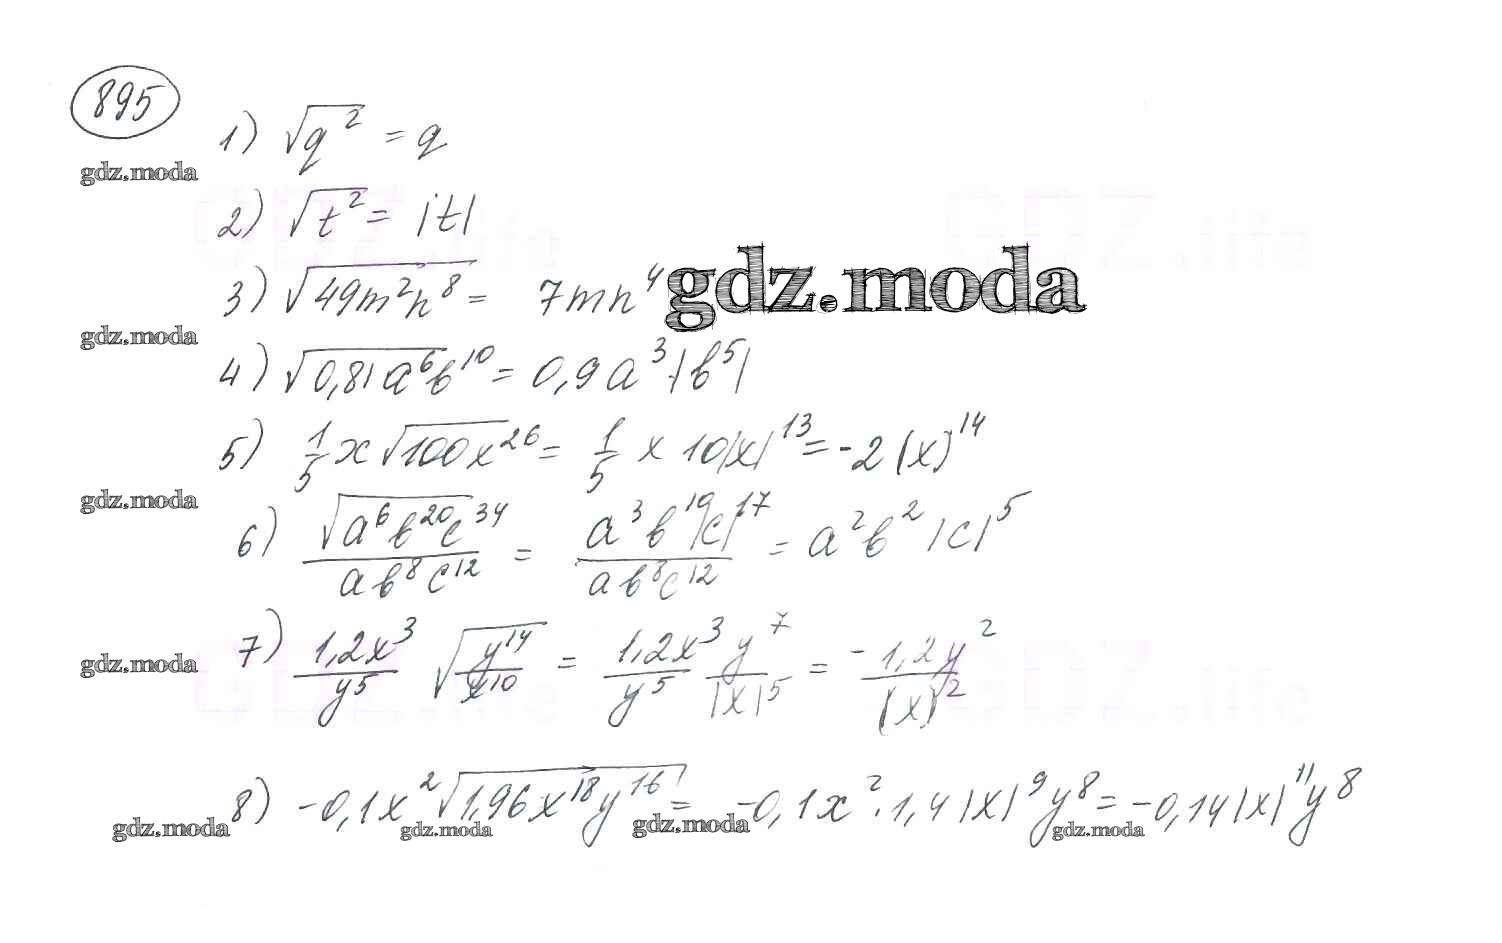 895
1) √q² = q
gdz.moda
2) √t² = |t|
3) √49m²n⁸ = 7mn⁴
gdz.moda
gdz.moda
4) √0,81a⁶b¹⁰ = 0,9a³·|b⁵|
5) 1/5 x √100x²⁶ = 1/5 x 10|x|¹³ = -2(x)¹⁴
gdz.moda
6) √a⁶b²⁰c³⁴ / ab⁸c¹² = a³b¹⁰|c|¹⁷ / ab⁸c¹² = a²b²|c|⁵
7) 1,2x³/y⁵ √y¹⁴/x¹⁰ = 1,2x³/y⁵ y⁷/|x|⁵ = -1,2y²/(x)²
gdz.moda
8) -0,1x²√1,96x¹⁸y¹⁶ = -0,1x²·1,4|x|⁹y⁸ = -0,14|x|¹¹y⁸
gdz.moda gdz.moda gdz.moda gdz.moda
GDZ.life GDZ.life
GDZ.life GDZ.life